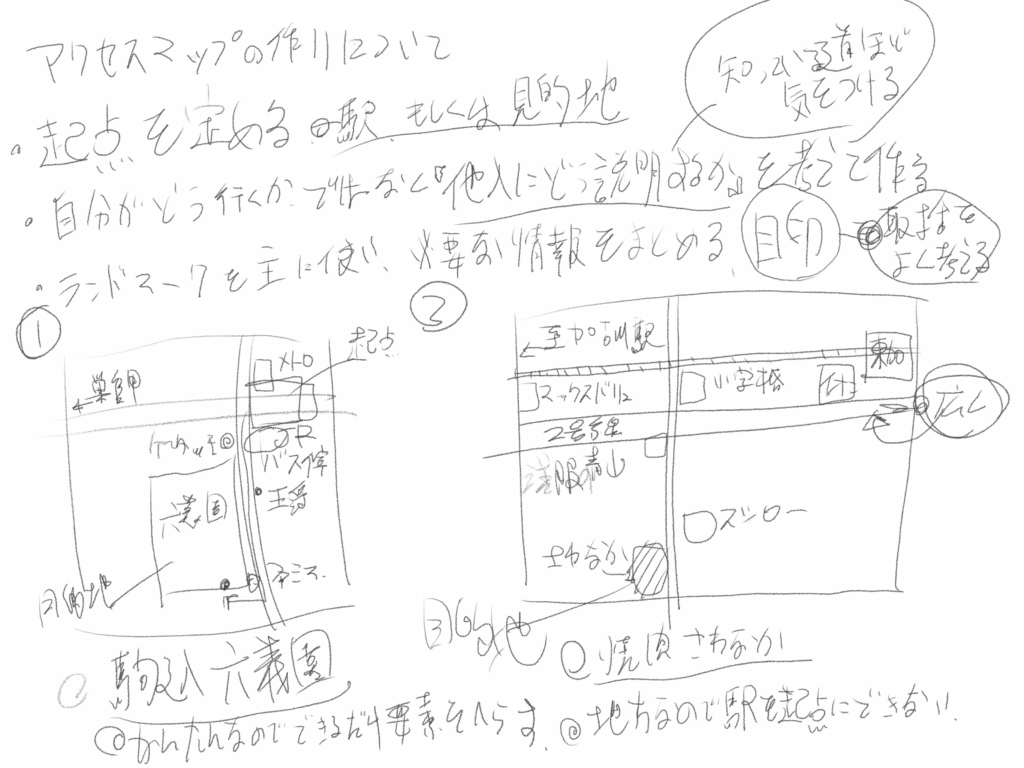 アクセスマップの作りについて
・起点を定める 駅 もしくは 見的地
知っている道ほど
気をつける
・自分がどう行くか ではなく『他人にどう説明するか』を考えて作る
・ランドマークを主に使い、必要な情報をまとめる
目印
取捨を
よく考える
①
起点
メトロ
←巣鴨
JR
バス停
王将
六義園
目的地
②
←至加古川駅
東加
マックスバリュ
小学校
広く
2号線
洋服青山
スシロー
さわなか
目的地
駒込 六義園
焼肉 さわなか
◎かんたんなのでできるだけ要素をへらす
◎地方なので駅を起点にできない